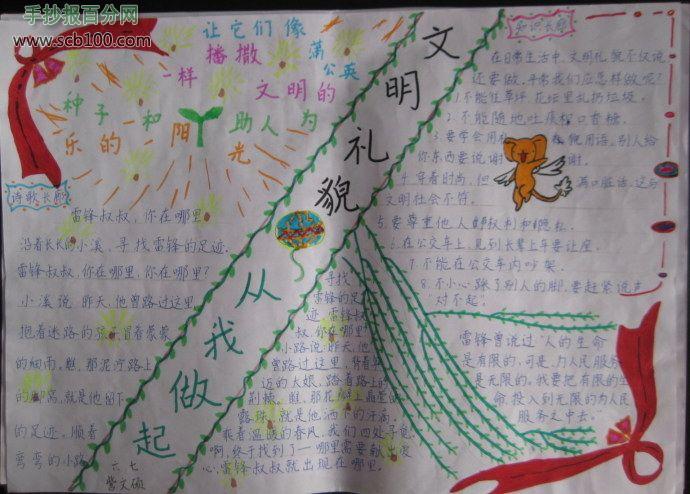 手抄报百分网
www.scb100.com
让它们像
播撒 蒲
一样 公英
文明的
种子和阳 助人为
乐的 光
文明礼貌
从我做起
诗歌长廊
雷锋叔叔，你在哪里
沿着长长的小溪，寻找雷锋的足迹.
雷锋叔叔，你在哪里，你在哪里？
小溪说：昨天，他曾路过这里
抱着迷路的孩子冒着蒙蒙
的细雨，瞧，那泥泞路上
的脚窝，就是他留下
的足迹。顺着
弯弯的小路
六七
寻找
雷锋的足
迹，雷锋叔
叔，你在哪里
小路说：昨天，他
曾路过这里，背着年
迈的大娘，踏着路上的
荆棘。瞧，那花瓣上晶莹的
露珠，就是他洒下的汗滴。
乘着温暖的春风，我们四处寻觅
啊，终于找到了一哪里需要献出爱
心，雷锋叔叔就出现在哪里。
知识长廊
在日常生活中，文明礼貌不仅说
还要做，平常我们应怎样做呢？
1.不能往草坪、花坛里乱扔垃圾。
2.不能随地吐痰和口香糖.
3.要学会用礼貌用语，别人给
你东西要说谢谢。
4.穿着时尚，但满口脏话，这与
文明社会不符.
5.要尊重他人的权利和隐私.
6.在公交车上，见到长辈上车要让座.
7.不能在公交车内吵架.
8.不小心踩了别人的脚，要赶紧说声
“对不起”.
雷锋曾说过“人的生命
是有限的，可是，为人民服务
是无限的。我要把有限的生
命，投入到无限的为人民
服务之中去。”